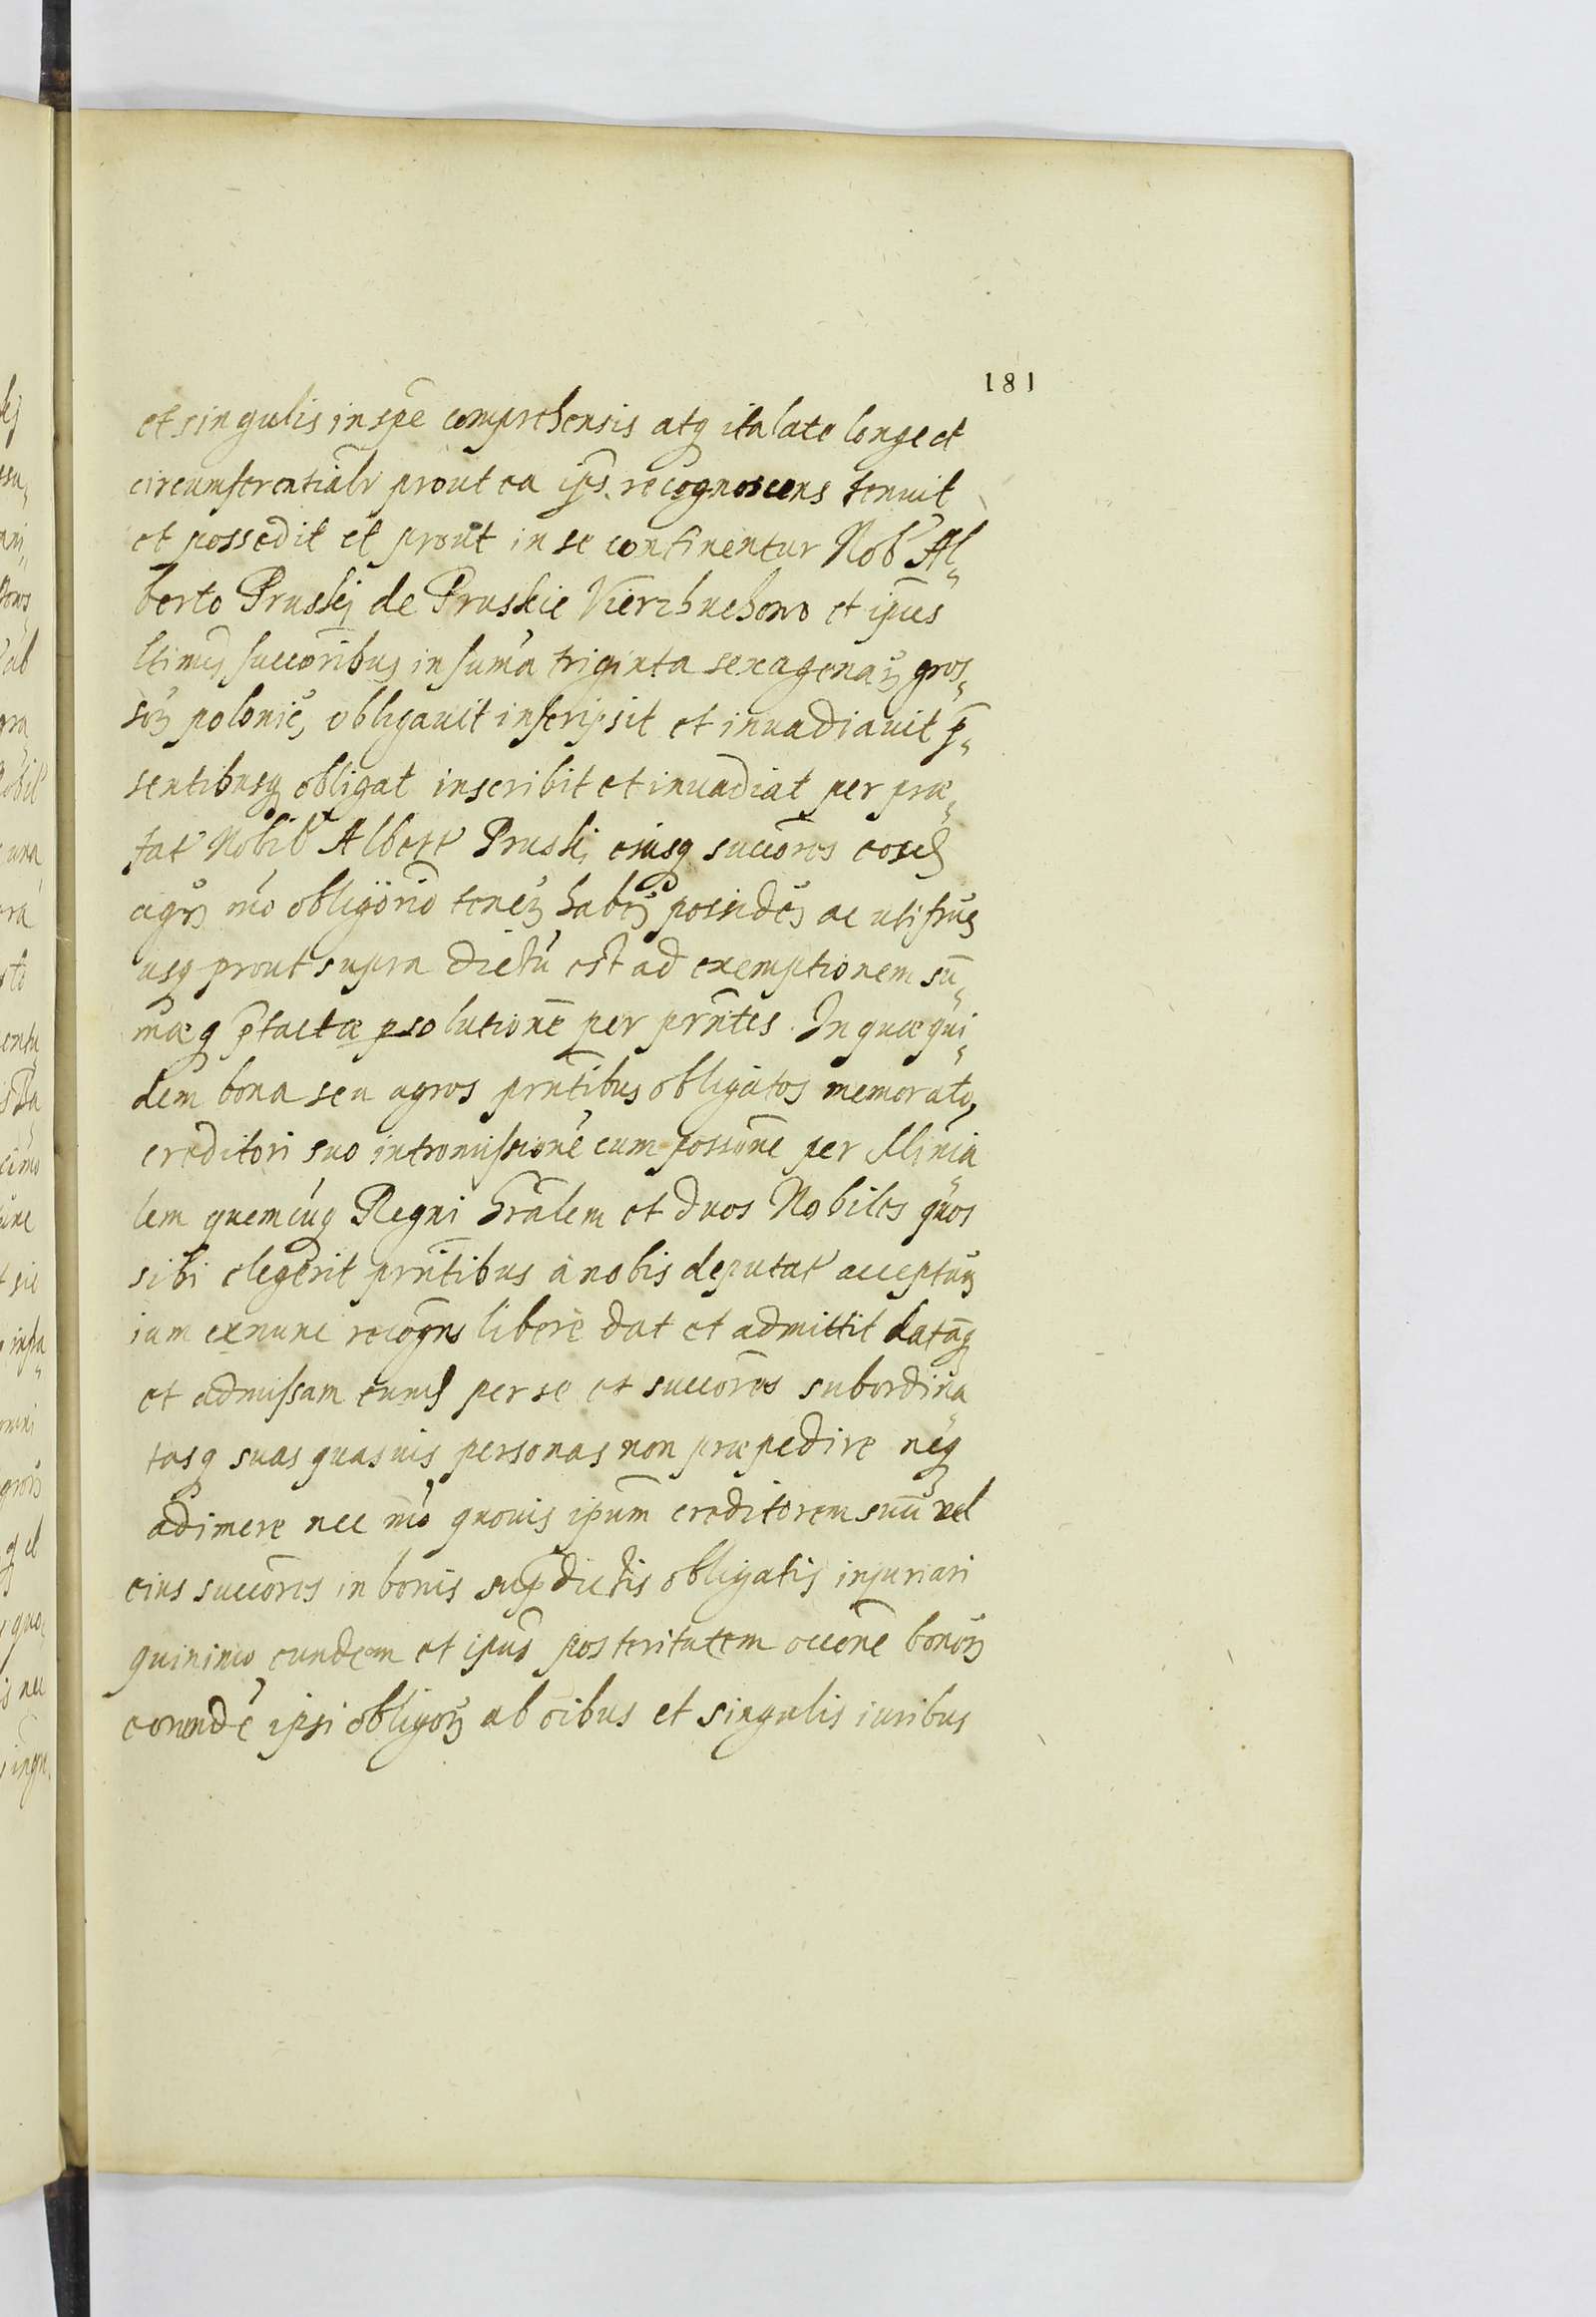 181
et singulis in spe comprehensis atq ita late longe et
circumferentialr prout ea ips. recognoscens tenuit
et possedit et prout in se continentur Nob Al„
berto Pruskj de Pruskie Vierzbuehowo et ipius
ltimis successoribus in suma triginta sexagenar gros„
sor polonic, obligauit inscripsit et inuadiauit p„
sentibusq obligat inscribit et inuadiat per præ„
tat Nobil Albert Pruski eiusq succores eosd
agr mo obligorio tener haber possider ac utifrue
usq prout supra dictu est ad exemptionem su„
mæq ptactæ psolutione per prntes. In quæ qui„
dem bona seu agros prntibus obligatos memorato,
creditori suo intromissione cum possone per Minia„
lem quemcuq Regni Gralem et duos Nobiles quos
sibi elegerit prntibus a nobis deputat acceptur
iam exnunc recogns libere dat et admittit datāq
et admissam eund per se et succores subordina„
tasq suas quasuis personas non præpedire neq
adimere nec mo quouis ipum creditorem suu vel
eius succores in bonis supdictis obligatis injuriari
quinimo eundem et ipus posteritatem occone bonor
eorunde ipsi obligor ab oibus et singulis iuribus